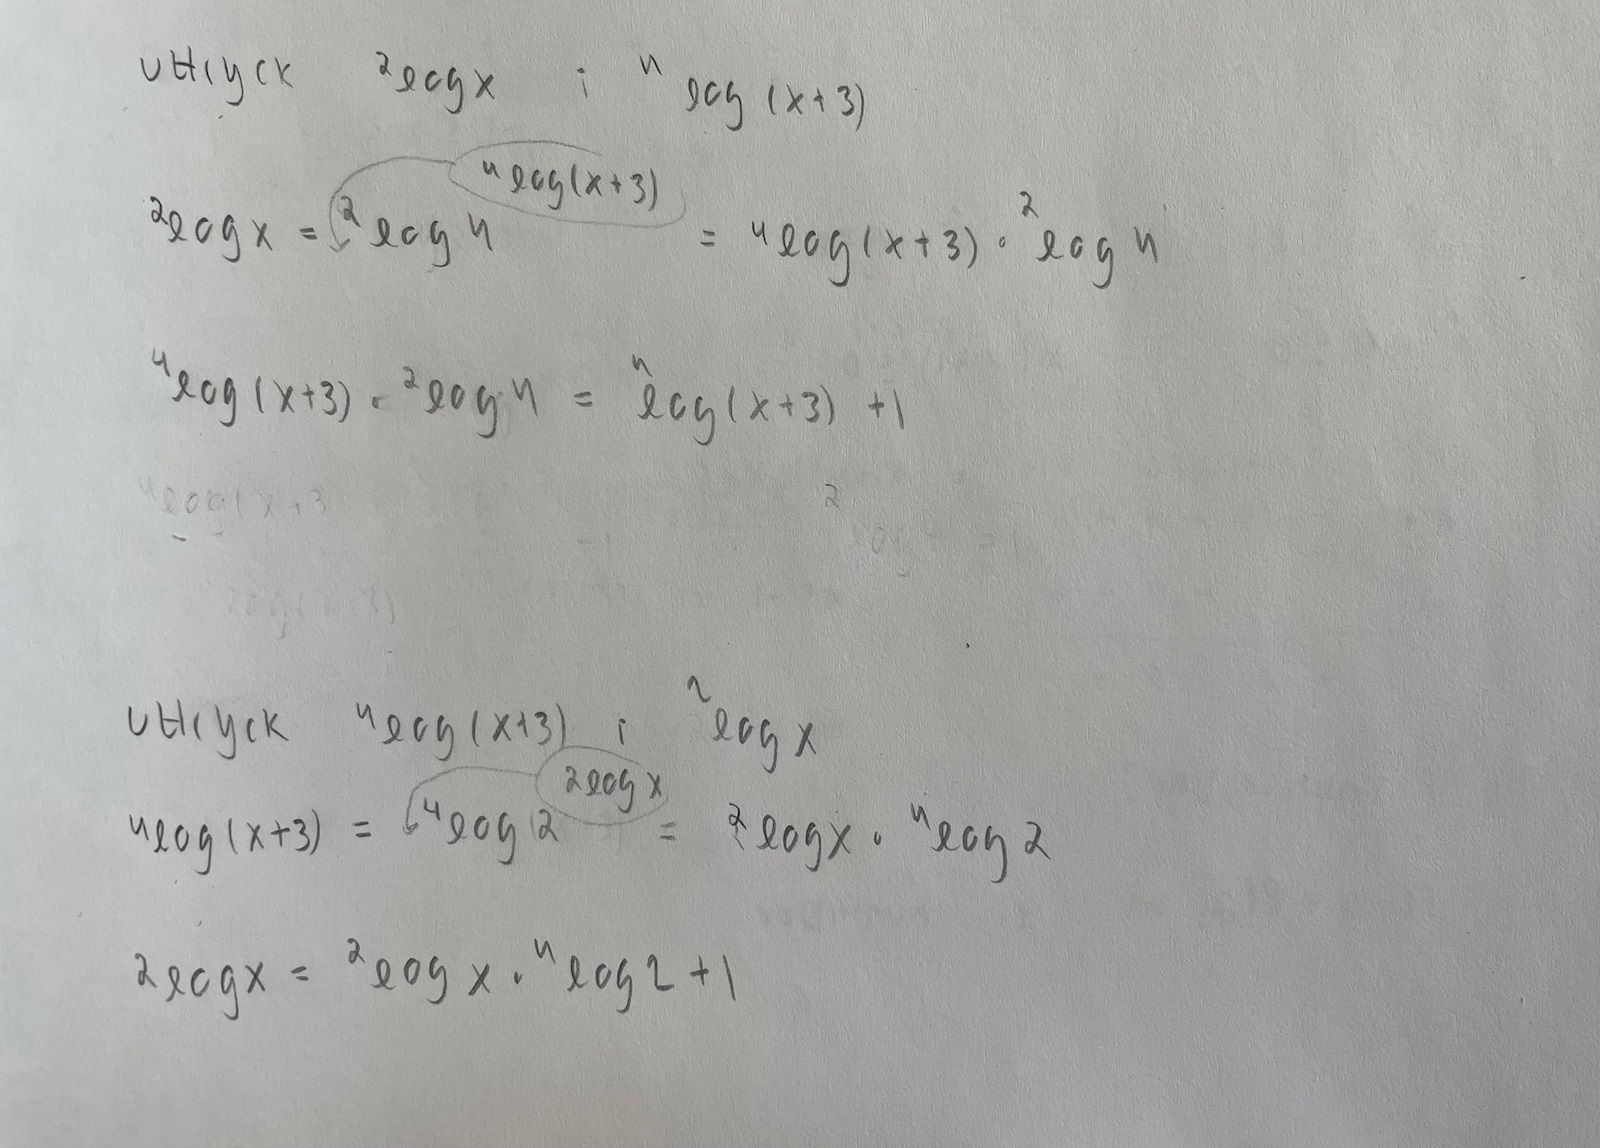 uttryck ²log x i ⁴log (x+3)
²log x = ²log 4^(⁴log(x+3)) = ⁴log(x+3) · ²log 4
⁴log(x+3) · ²log 4 = ⁴log(x+3) +1
uttryck ⁴log(x+3) i ²log x
⁴log(x+3) = ⁴log 2^(²log x) = ²log x · ⁴log 2
²log x = ²log x · ⁴log 2 +1